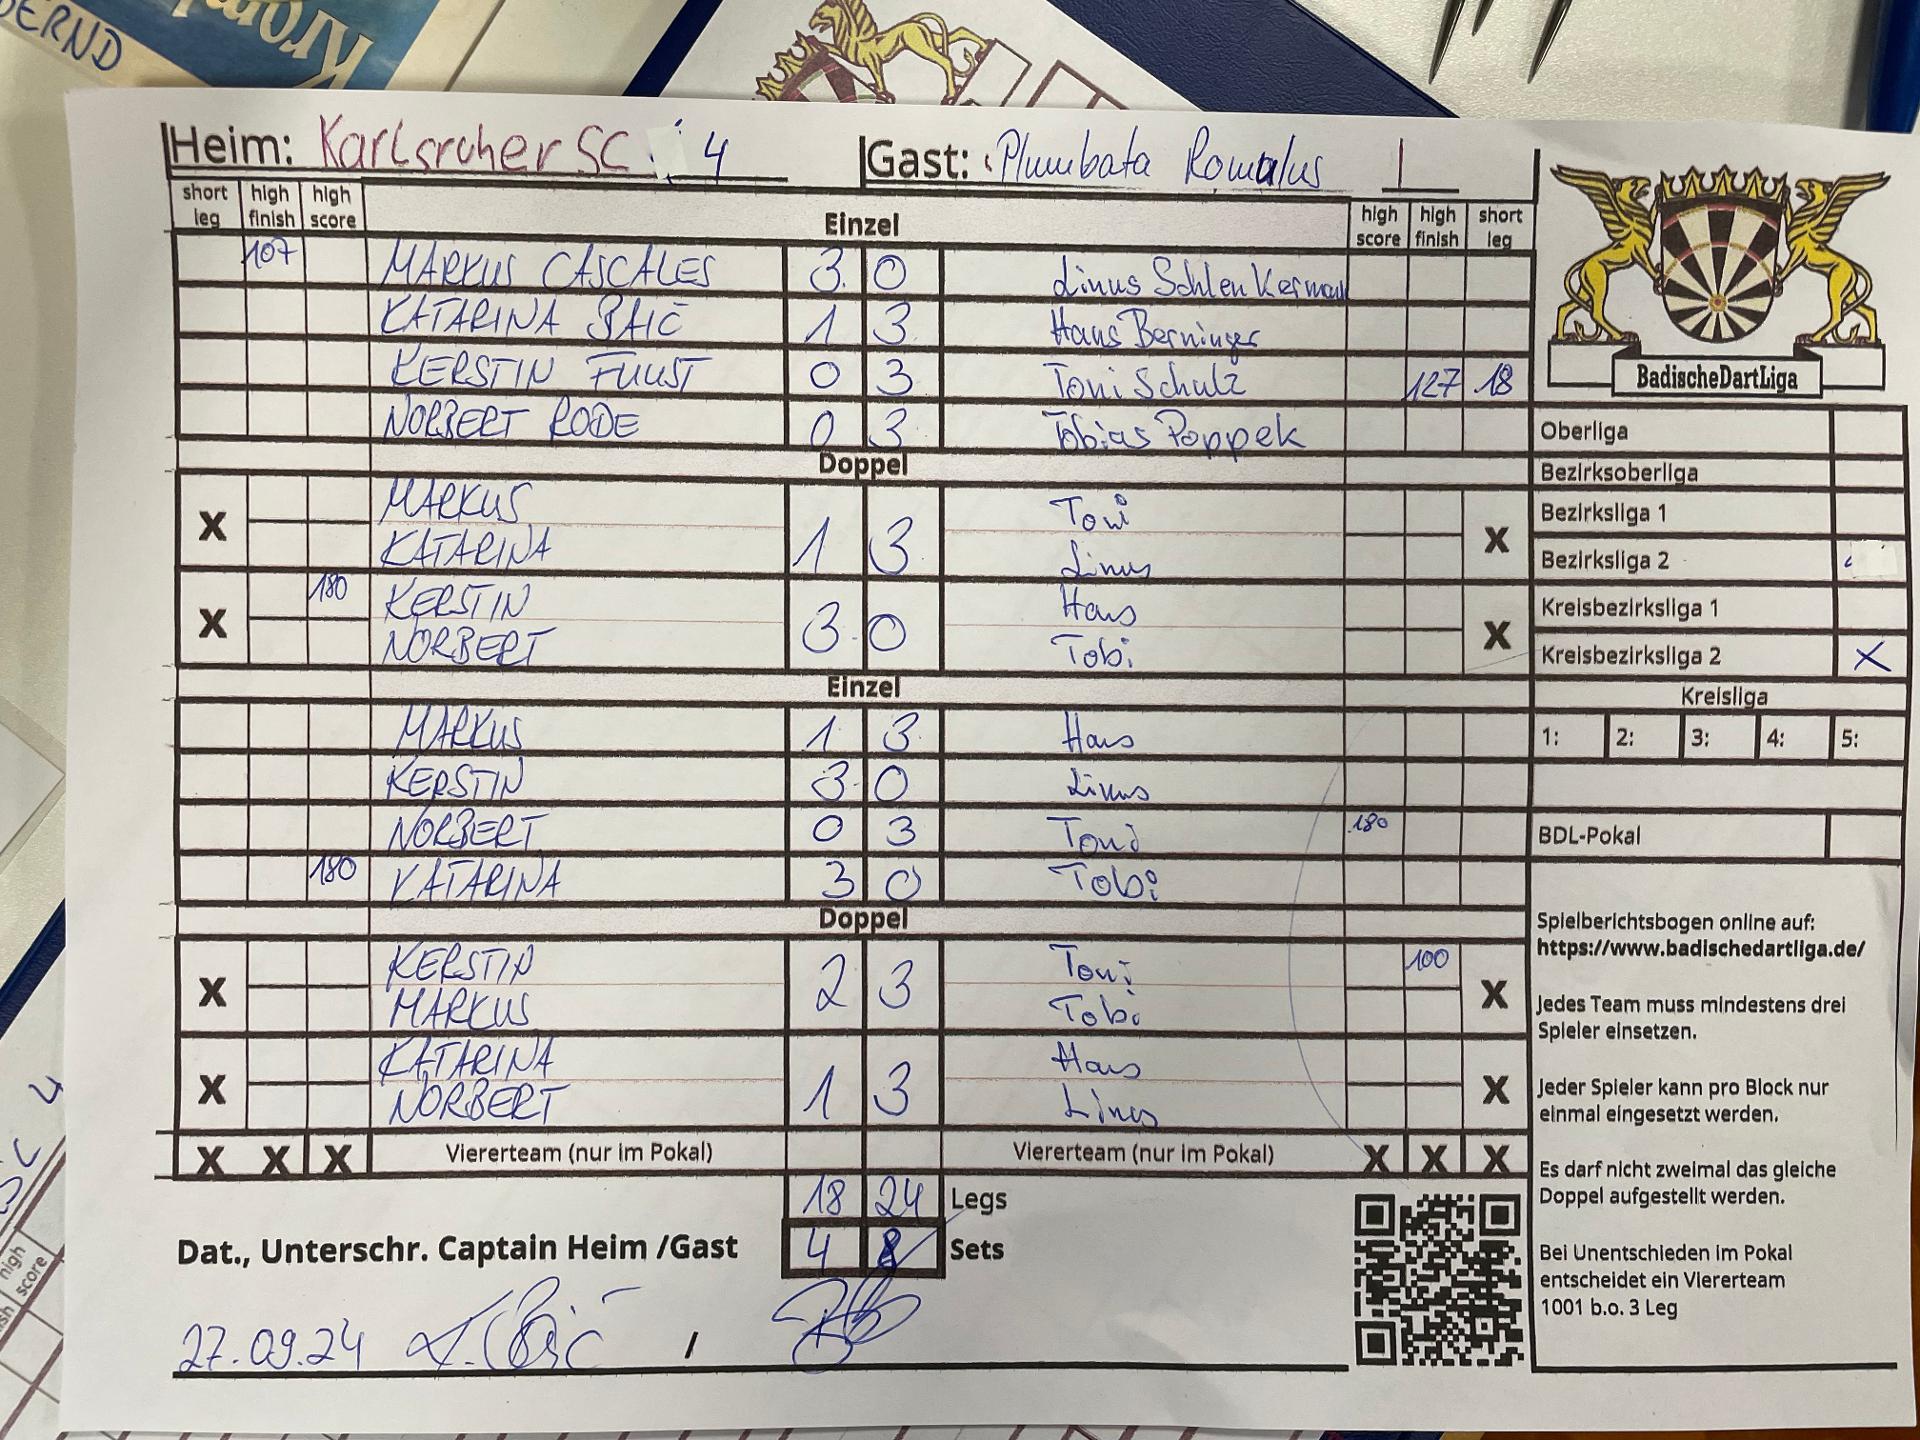 BERND
Heim: Karlsruher SC 4
Gast: Plumbata Romulus 1
short leg
high finish
high score
Einzel
high score
high finish
short leg
107 MARKUS CASCALES 3 0 Linus Schlenkermann
KATARINA BAIĆ 1 3 Hans Berninger
KERSTIN FUUST 0 3 Toni Schulz 127 18
NORBERT RODE 0 3 Tobias Poppek
Doppel
X MARKUS 1 3 Toni X
KATARINA Linus
X 180 KERSTIN 3 0 Hans X
NORBERT Tobi
Einzel
MARKUS 1 3 Hans
KERSTIN 3 0 Linus
NORBERT 0 3 Toni 180
180 KATARINA 3 0 Tobi
Doppel
X KERSTIN 2 3 Toni 100 X
MARKUS Tobi
X KATARINA 1 3 Hans X
NORBERT Linus
X X X Viererteam (nur im Pokal) Viererteam (nur im Pokal) X X X
18 24 Legs
Dat., Unterschr. Captain Heim /Gast 4 8 Sets
27.09.24 /
BadischeDartLiga
Oberliga
Bezirksoberliga
Bezirksliga 1
Bezirksliga 2
Kreisbezirksliga 1
Kreisbezirksliga 2 X
Kreisliga
1: 2: 3: 4: 5:
BDL-Pokal
Spielberichtsbogen online auf:
https://www.badischedartliga.de/
Jedes Team muss mindestens drei
Spieler einsetzen.
Jeder Spieler kann pro Block nur
einmal eingesetzt werden.
Es darf nicht zweimal das gleiche
Doppel aufgestellt werden.
Bei Unentschieden im Pokal
entscheidet ein Viererteam
1001 b.o. 3 Leg
high
score